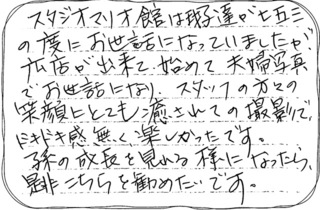 スタジオマリオ館は我子達が七五三
の度にお世話になっていましたが
広店が出来て、始めて夫婦写真
でお世話になり、スタッフの方々の
笑顔にとても癒されての撮影で、
ドキドキ感無く、楽しかったです。
孫の成長を見れる様になったら、
是非こちらを勧めたいです。